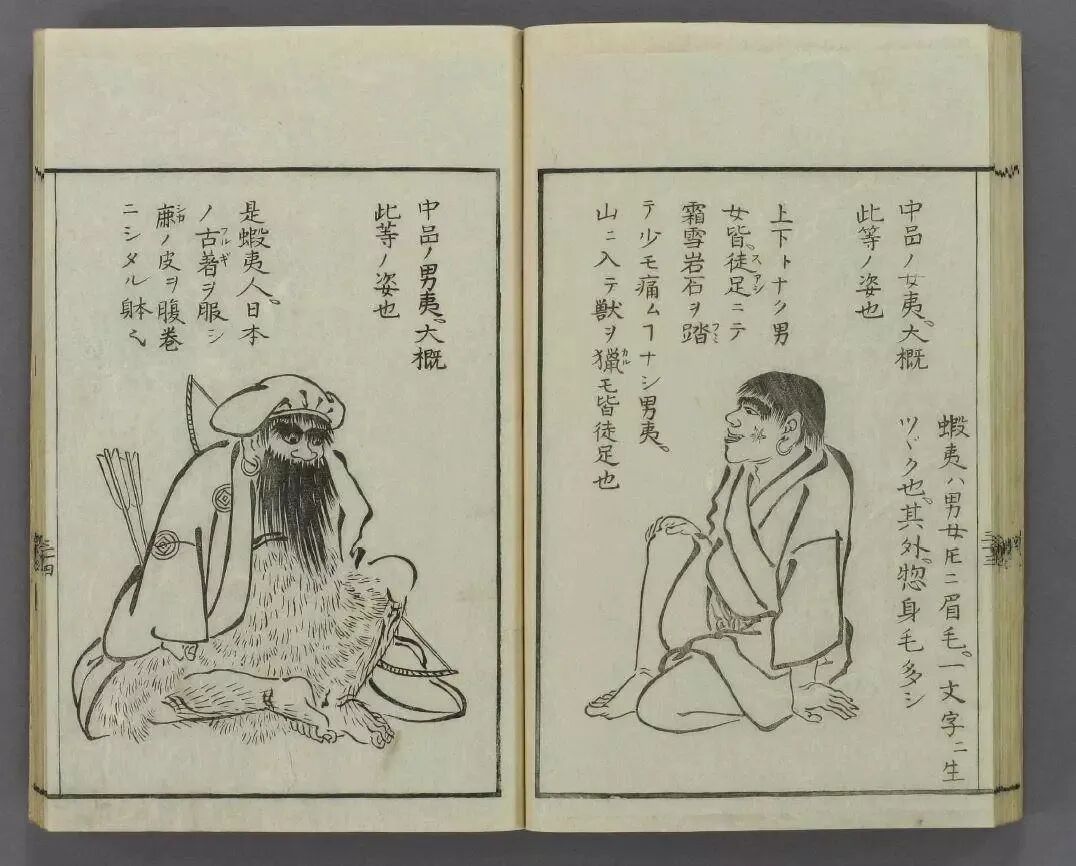 蝦夷ハ男女𪜈ニ眉毛。一文字ニ生
ツヾク也。其外。惣身毛多シ
中品ノ女夷。大概
此等ノ姿也
上下トナク男
スアシ
女皆。徒足ニテ
フミ
霜雪岩石ヲ踏
テ少モ痛ムヿナシ男夷。
カル
山ニ入テ獣ヲ猟モ皆徒足也
中品ノ男夷。大概
此等ノ姿也
是蝦夷人。日本
フルギ
ノ古著ヲ服シ
シカ
鹿ノ皮ヲ腹巻
ニシタル躰也